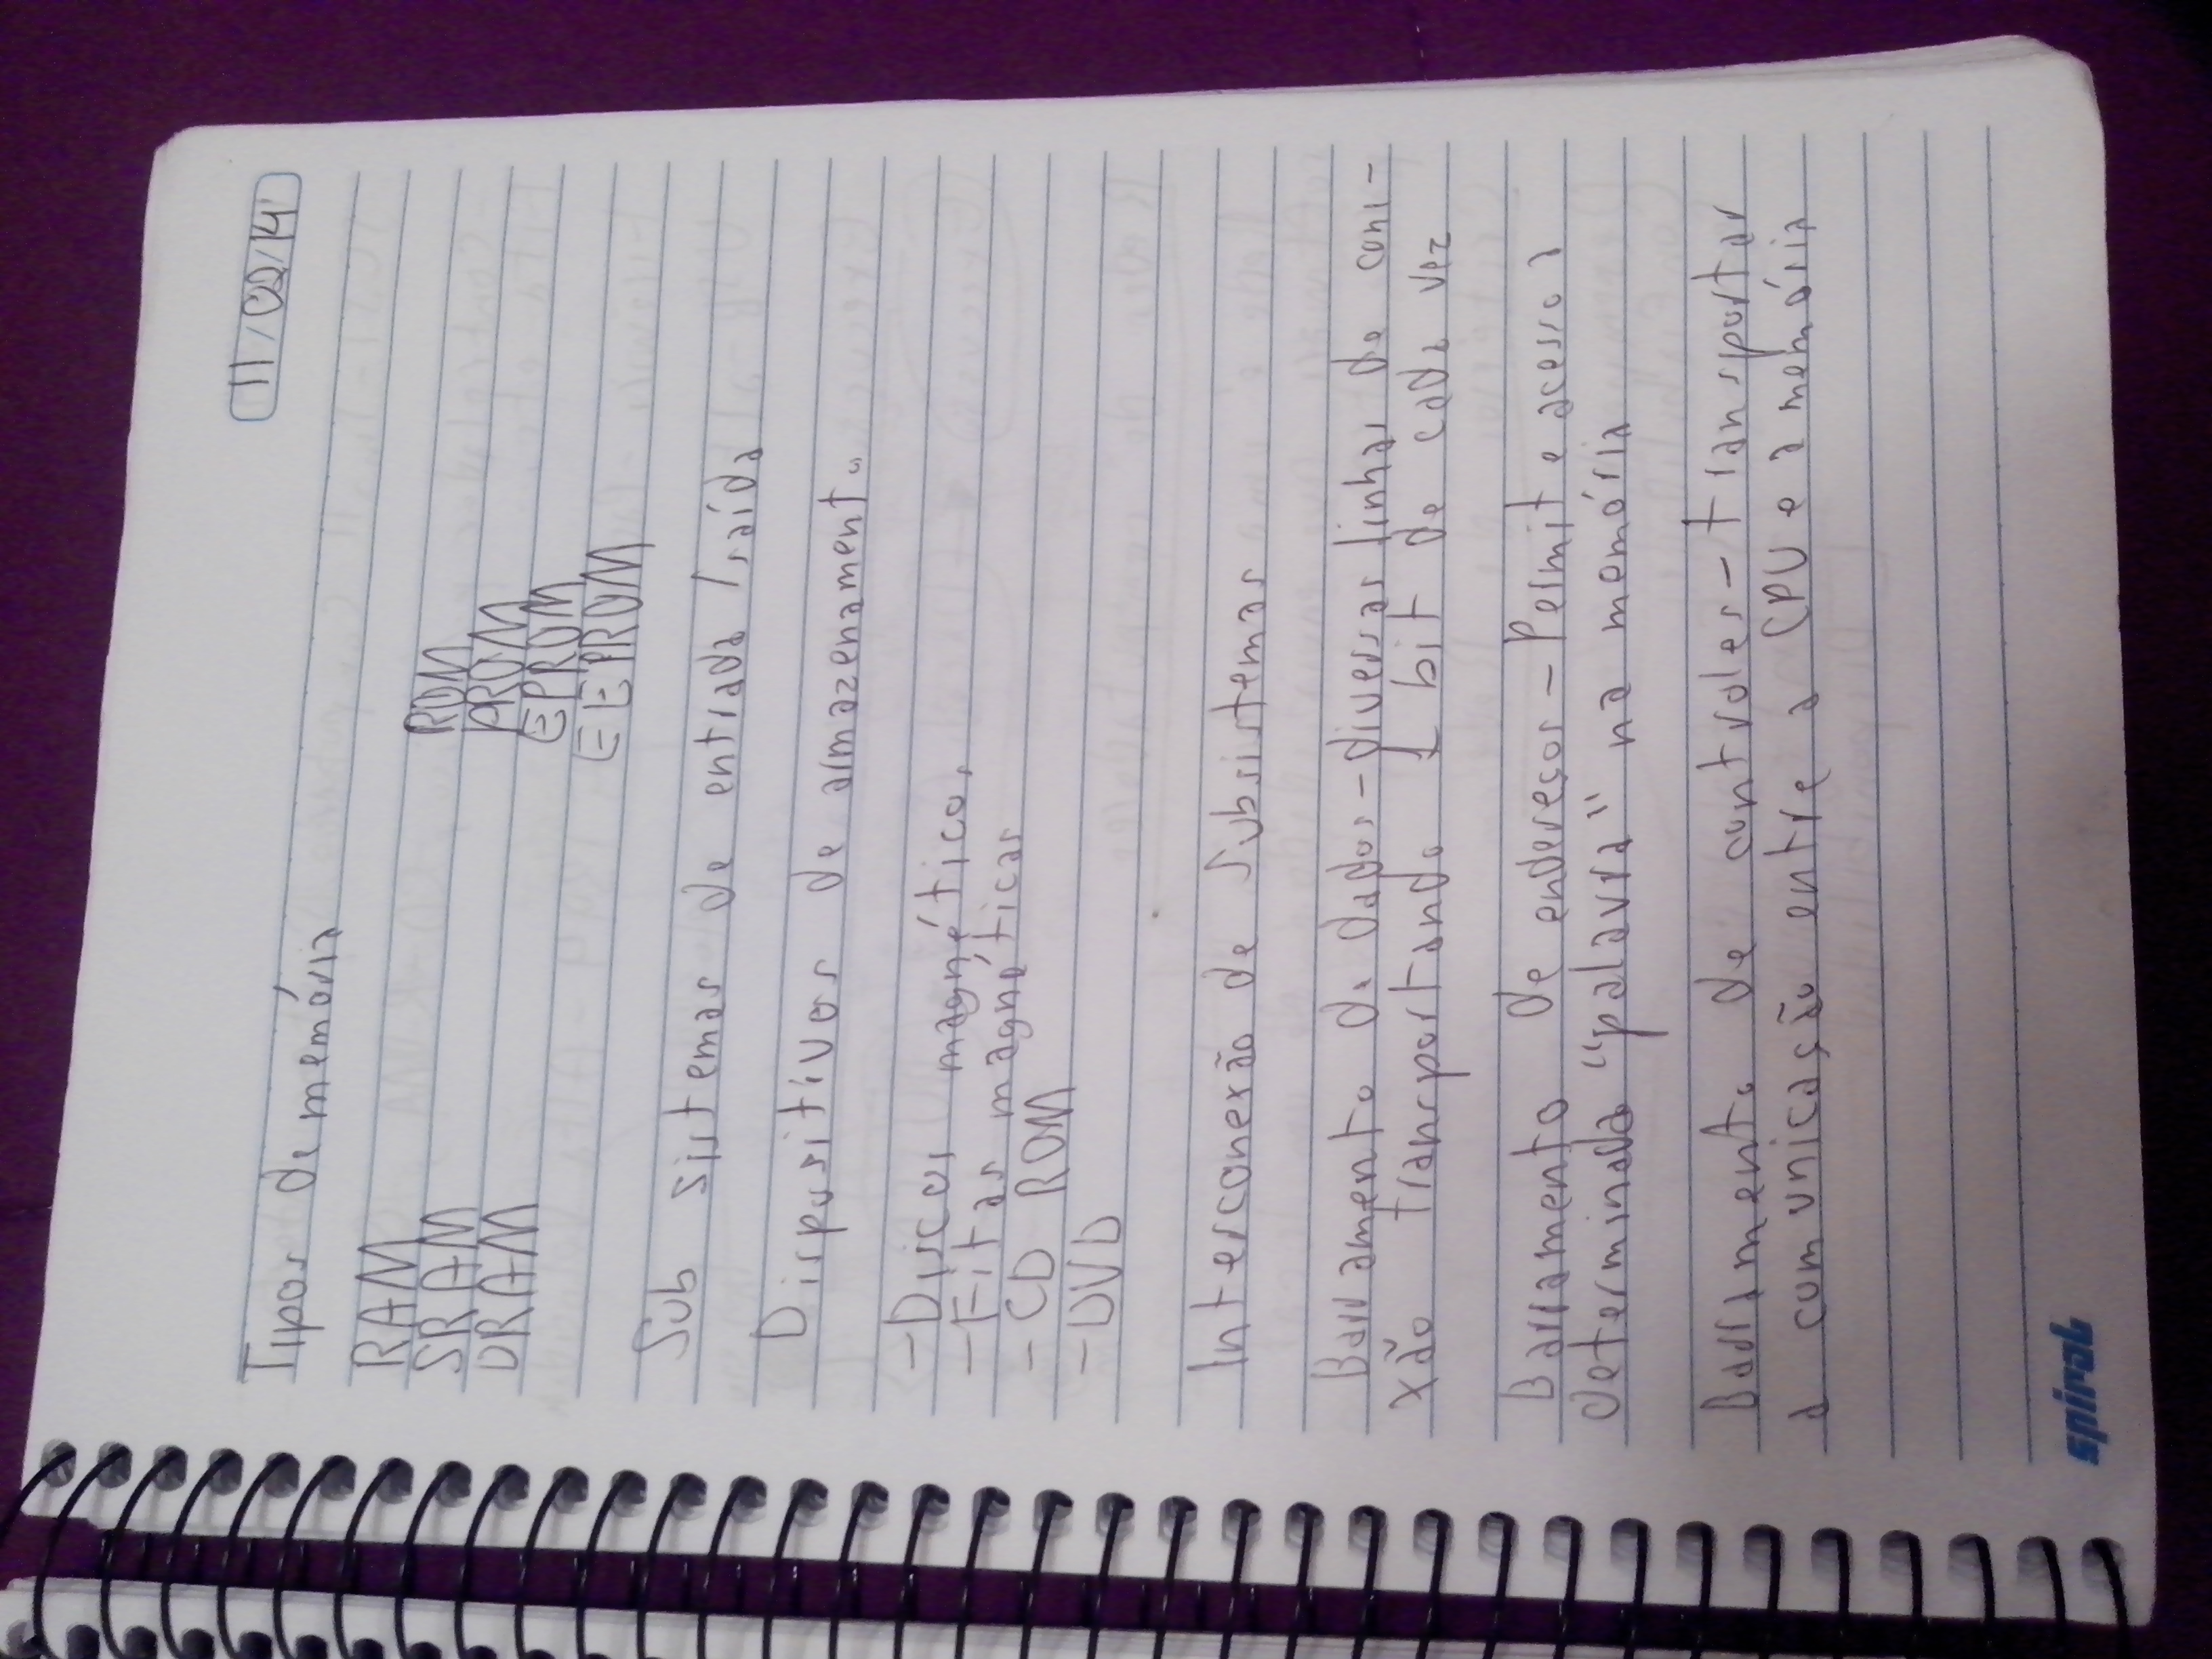 11/02/14
Tipos de memória
RAM
SRAM
DRAM
ROM
PROM
EPROM
EEPROM
Sub sistemas de entrada/saída
Dispositivos de armazenamento
-Discos magnéticos
-Fitas magnéticas
-CD ROM
-DVD
Interconexão de Subsistemas
Barramento de dados-diversas linhas de cone-
xão transportando 1 bit de cada vez
Barramento de endereços-Permite acesso a
determinada "palavra" na memória
Barramento de controles-transportar
a comunicação entre a CPU e a memória
spiral